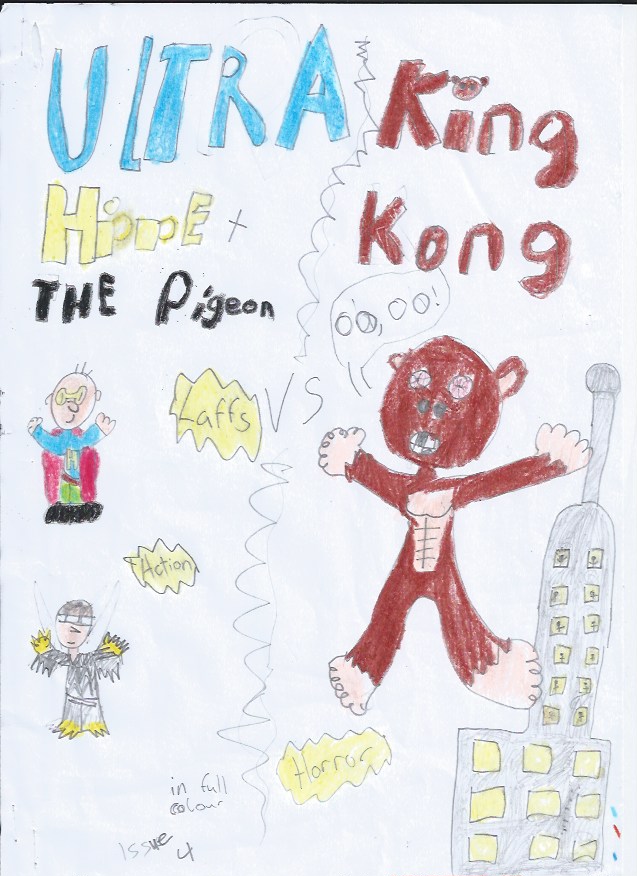 ULTRA
HippE +
THE Pigeon
King
Kong
OO, OO!
Laffs
VS
Action
H
Horror
in full
colour
Issue 4